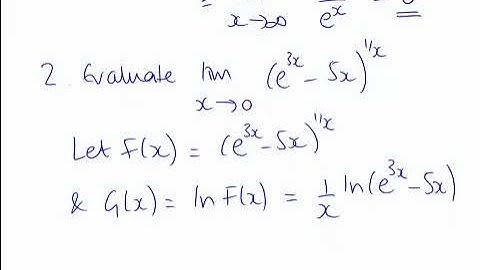 = lim x→∞ 1/e^x = 0
2. Evaluate lim x→0 (e^{3x} - 5x)^{1/x}
Let F(x) = (e^{3x} - 5x)^{1/x}
& G(x) = ln F(x) = 1/x ln(e^{3x} - 5x)